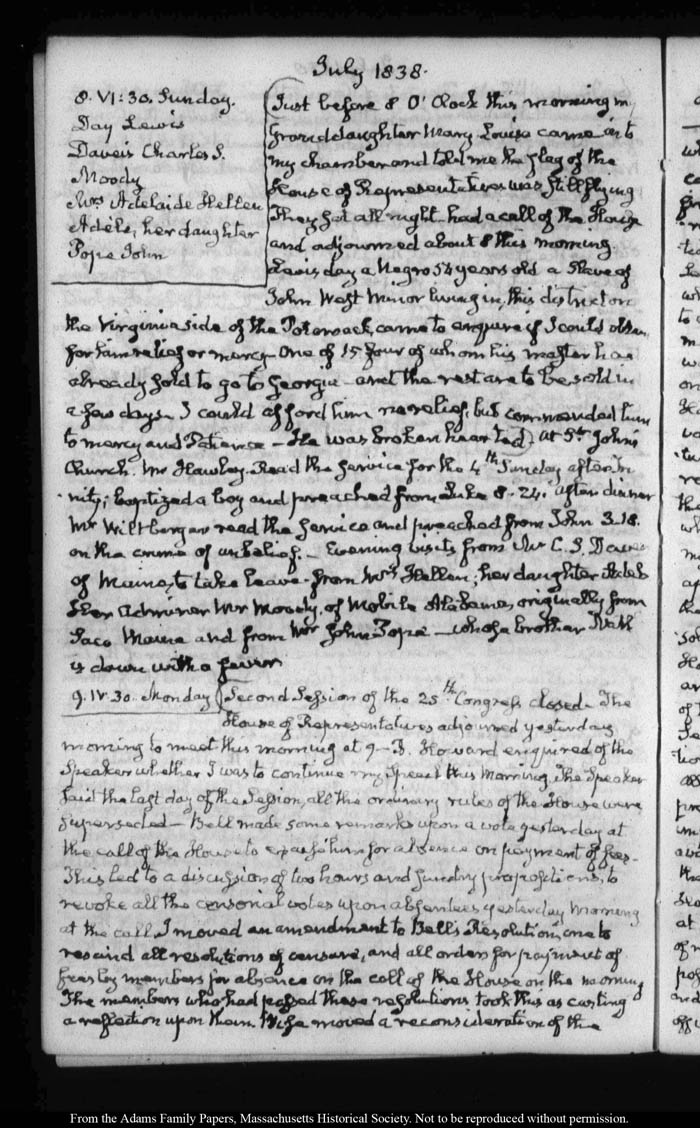 July 1838.
8. VI:30. Sunday.
Day Lewis
Daveis Charles S.
Moody
Mrs Adelaide Hellen
Adèle, her daughter
Pope John
Just before 8 O'Clock this morning my
Granddaughter Mary Louisa came into
my chamber and told me the flag of the
House of Representatives was still flying
They sat all night had a call of the House
and adjourned about 8 this morning
Lewis day a Negro 54 years old a Slave of
John West Minor living in this district on
the Virginia side of the Potomack, came to enquire if I could obtain
for him relief or mercy One of 15 four of whom his master has
already sold to go to Georgia and the rest are to be sold in
a few days. I could afford him no relief, but commended him
to mercy and Patience – He was broken hearted) At St. John's
Church. Mr Hawley. Read the service for the 4th Sunday after Tri
nity; baptized a boy and preached from Luke 8. 24. After dinner
Mr Wiltberger read the service and preached from John 3.18.
on the crime of unbelief. – Evening visits from Mr C. S. Daveis
of Maine, to take leave. from Mrs Hellen; her daughter Adele
Her admirer Mr Moody, of Mobile Alabama, originally from
Saco Maine and from Mr John Pope – whose brother
is down with a fever
9. IV.30. Monday Second Session of the 25th Congress closed. The
House of Representatives adjourned yesterday
morning to meet this morning at 9 – B. Howard enquired of the
Speaker whether I was to continue my Speech this Morning. The Speaker
said the last day of the Session, all the ordinary rules of the House were
superseded – Bell made some remarks upon a vote yesterday at
the call of the House to excuse him for absence on payment of fees –
This led to a discussion of two hours and sundry propositions, to
revoke all the censorial votes upon absentees yesterday morning
at the call. I moved an amendment to Bell's Resolution, one to
rescind all resolutions of censure, and all orders for payment of
fees by members for absence on the call of the House on the morning
The members who had passed these resolutions took this as casting
a reflection upon them. Wise moved a reconsideration of the
From the Adams Family Papers, Massachusetts Historical Society. Not to be reproduced without permission.